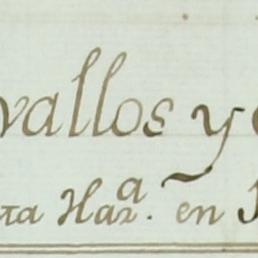 vallos y
ra Haz.ª en